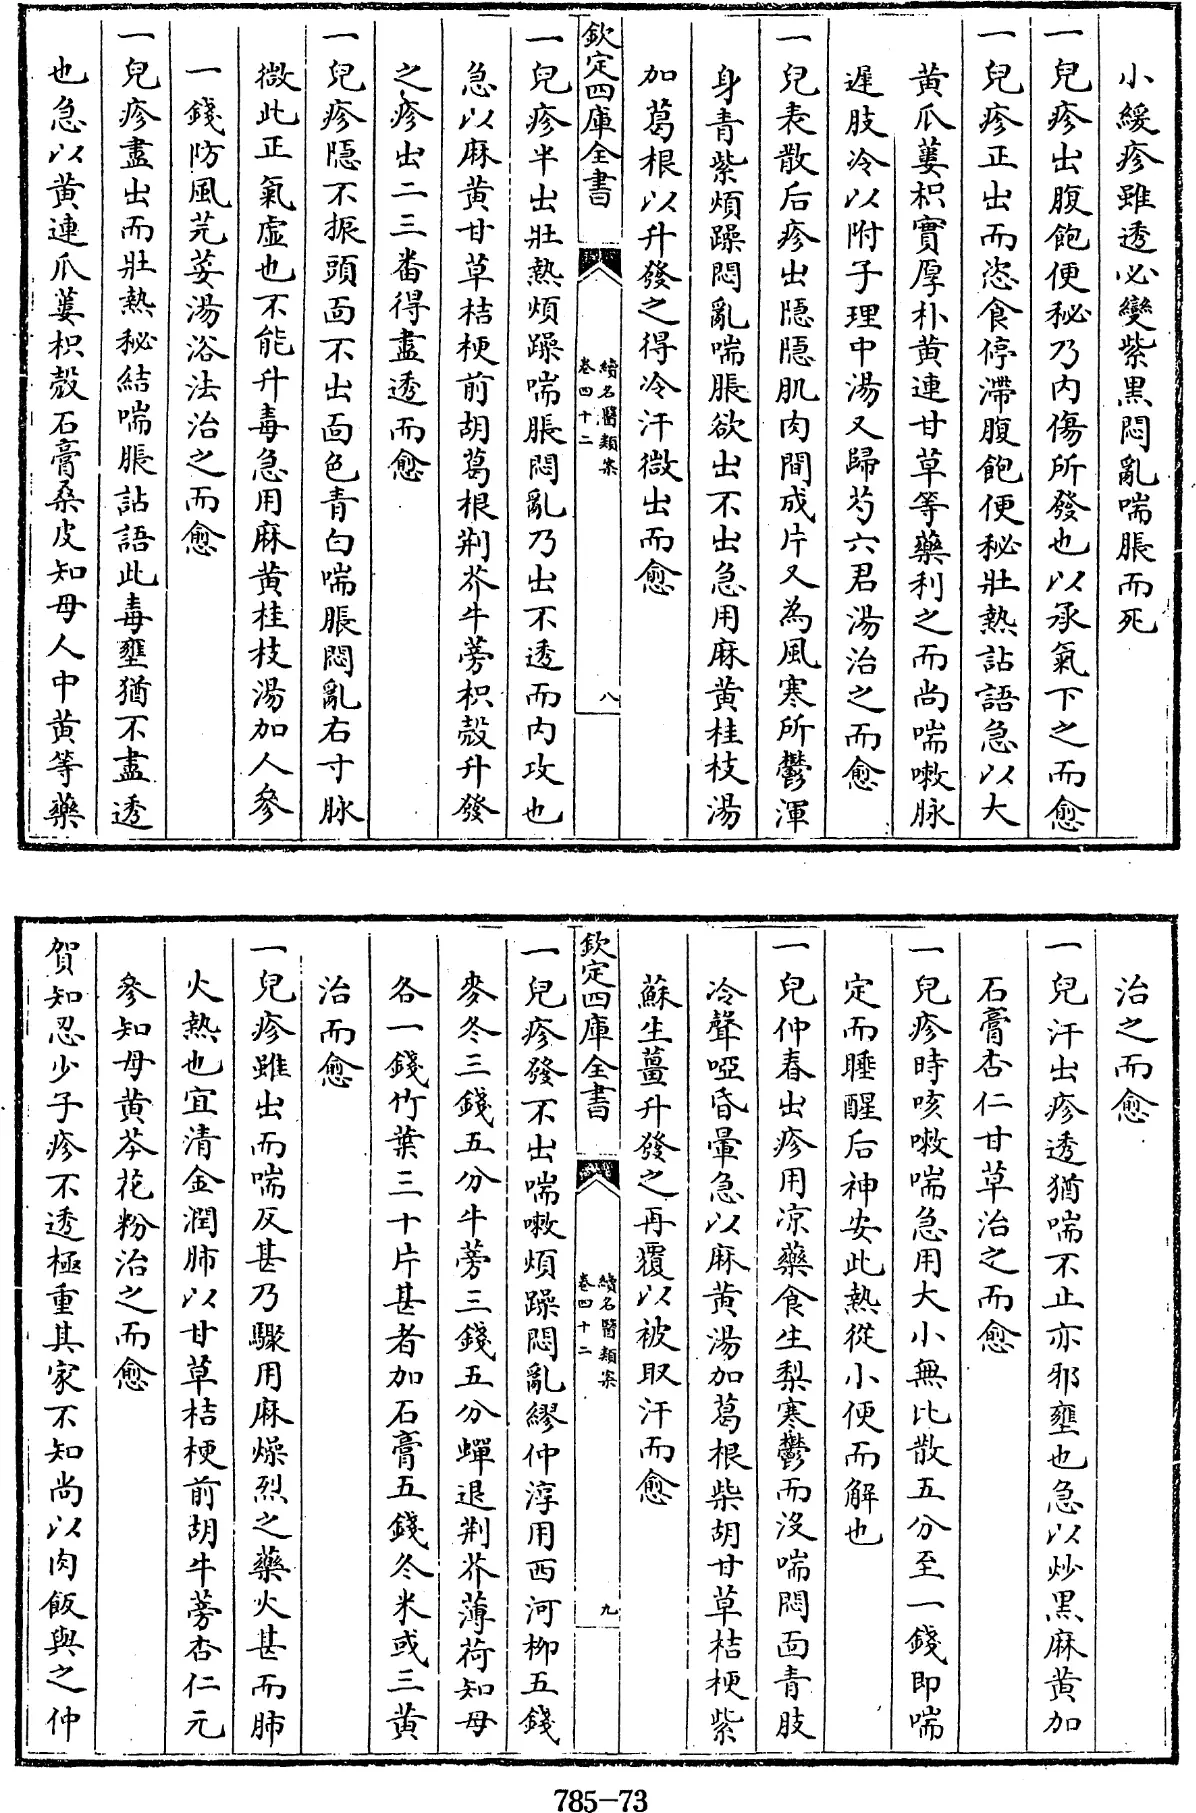 小緩疹雖透必變紫黑悶亂喘脹而死
一兒疹出腹飽便秘乃内傷所發也以承氣下之而愈
一兒疹正出而恣食停滯腹飽便秘壯熱詀語急以大
黄瓜蔞枳實厚朴黄連甘草等藥利之而尚喘嗽脉
遲肢冷以附子理中湯又歸芍六君湯治之而愈
一兒表散后疹出隱隱肌肉間成片又為風寒所鬱渾
身青紫煩躁悶亂喘脹欲出不出急用麻黄桂枝湯
加葛根以升發之得冷汗微出而愈
欽定四庫全書
續名醫類案
卷四十二
八
一兒疹半出壯熱煩躁喘脹悶亂乃出不透而内攻也
急以麻黄甘草桔梗前胡葛根荆芥牛蒡枳殼升發
之疹出二三番得盡透而愈
一兒疹隱不振頭面不出面色青白喘脹悶亂右寸脉
微此正氣虛也不能升毒急用麻黄桂枝湯加人參
一錢防風芫荽湯浴法治之而愈
一兒疹盡出而壯熱秘結喘脹詀語此毒壅猶不盡透
也急以黄連瓜蔞枳殼石膏桑皮知母人中黄等藥
治之而愈
一兒汗出疹透猶喘不止亦邪壅也急以炒黑麻黄加
石膏杏仁甘草治之而愈
一兒疹時咳嗽喘急用大小無比散五分至一錢即喘
定而睡醒后神安此熱從小便而解也
一兒仲春出疹用凉藥食生梨寒鬱而没喘悶面青肢
冷聲啞昏暈急以麻黄湯加葛根柴胡甘草桔梗紫
蘇生薑升發之再覆以被取汗而愈
欽定四庫全書
續名醫類案
卷四十二
九
一兒疹發不出喘嗽煩躁悶亂繆仲淳用西河柳五錢
麥冬三錢五分牛蒡三錢五分蟬退荆芥薄荷知母
各一錢竹葉三十片甚者加石膏五錢冬米或三黄
治而愈
一兒疹雖出而喘反甚乃驟用麻燥烈之藥火甚而肺
火熱也宜清金潤肺以甘草桔梗前胡牛蒡杏仁元
參知母黄芩花粉治之而愈
賀知忍少子疹不透極重其家不知尚以肉飯與之仲
785-73